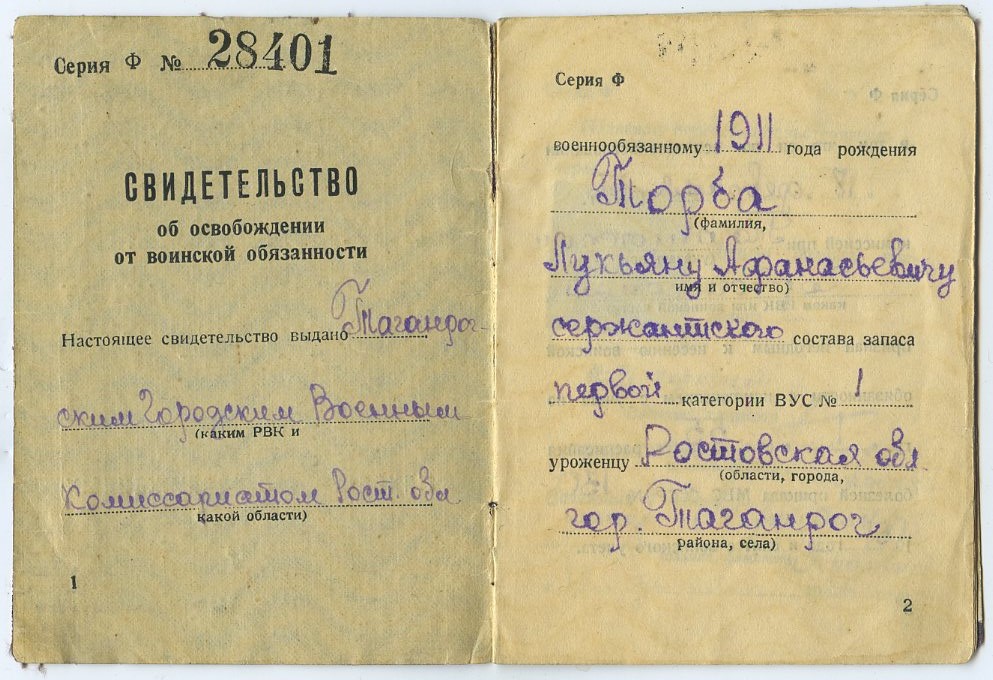 Серия Ф № 28401
СВИДЕТЕЛЬСТВО
об освобождении
от воинской обязанности
Настоящее свидетельство выдано Таганрог-
ским Городским Военным
(каким РВК и
Комиссариатом Рост. обл
какой области)
1
Серия Ф
военнообязанному 1911 года рождения
Торба
(фамилия,
Лукьяну Афанасьевичу
имя и отчество)
сержантского состава запаса
первой категории ВУС № 1
уроженцу Ростовская обл
(области, города,
гор. Таганрог
района, села)
2